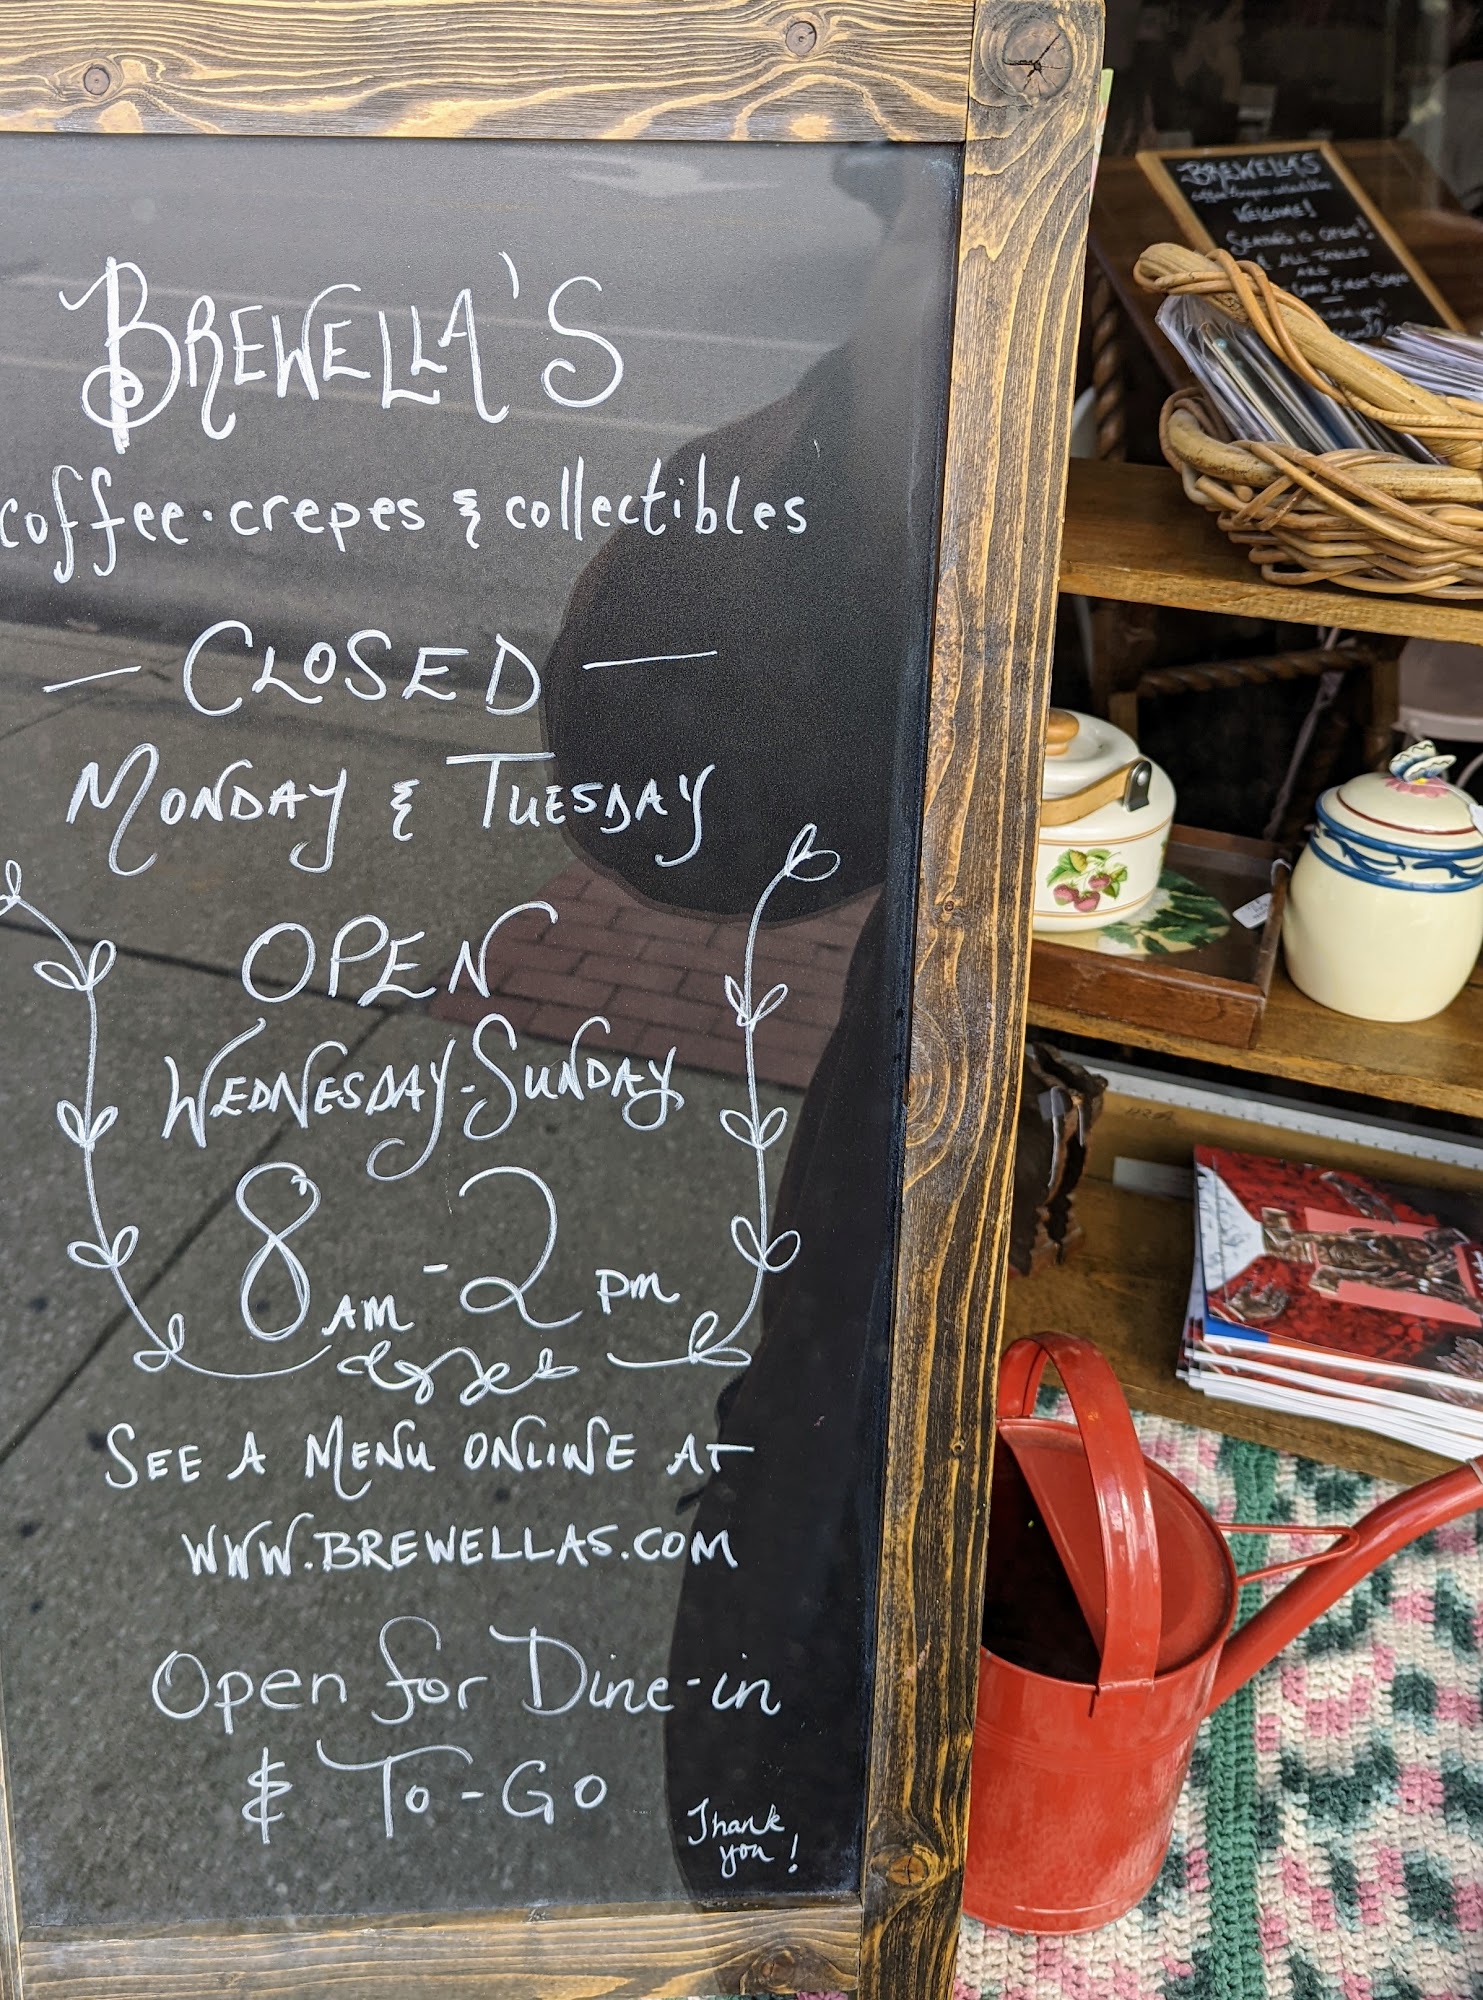 BREWELLA'S
coffee · crepes & collectibles
— CLOSED —
MONDAY & TUESDAY
OPEN
WEDNESDAY-SUNDAY
8 AM - 2 PM
SEE A MENU ONLINE AT
WWW.BREWELLAS.COM
Open for Dine-in
& To-Go
Thank
you!
BREWELLA'S
coffee crepes collectibles
WELCOME!
SEATING IS OPEN!
ALL TABLES
ARE
FIRST